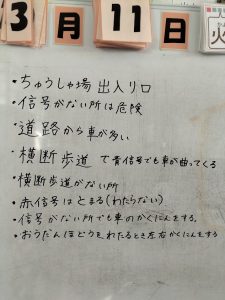 3月11日 火
・ちゅうしゃ場 出入り口
・信号がない所は危険
・道路から車が多い
・横断歩道で青信号でも車が曲ってくる
・横断歩道がない所
・赤信号はとまる(わたらない)
・信号がない所でも車のかくにんをする。
・おうだんほどうをわたるとき左右かくにんをする